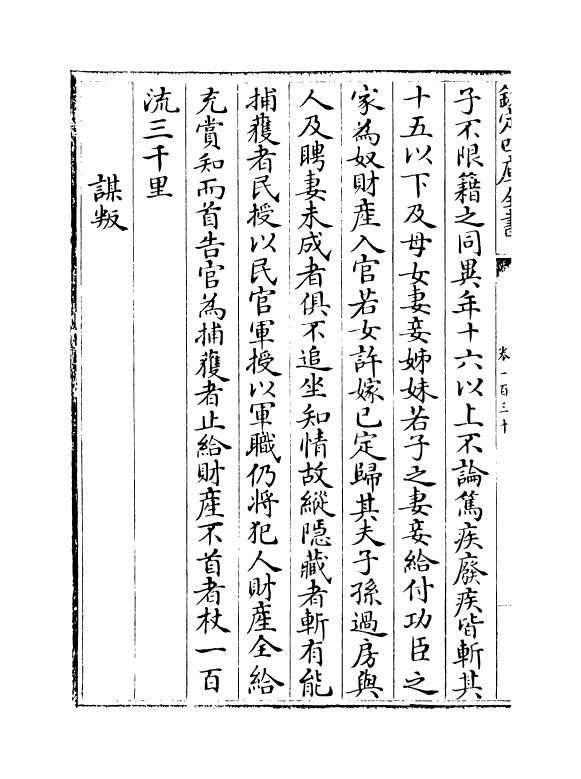 欽定四庫全書
卷一百三十
子不限籍之同異年十六以上不論篤疾廢疾皆斬其
十五以下及母女妻妾姊妹若子之妻妾給付功臣之
家為奴財產入官若女許嫁已定歸其夫子孫過房與
人及聘妻未成者俱不追坐知情故縱隱藏者斬有能
捕獲者民授以民官軍授以軍職仍將犯人財產全給
充賞知而首告官為捕獲者止給財產不首者杖一百
流三千里
謀叛